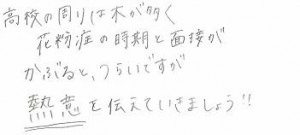 高校の周りは木が多く
花粉症の時期と面接が
かぶると、つらいですが
熱意を伝えていきましょう!!